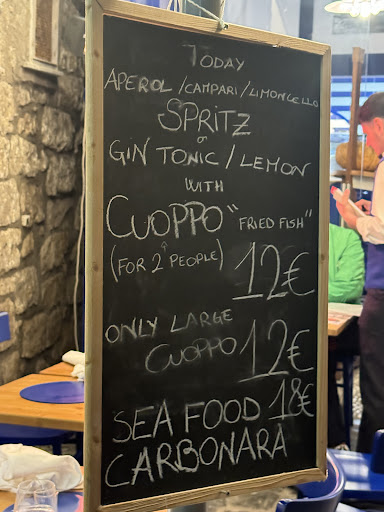 TODAY
APEROL/CAMPARI/LIMONCELLO
SPRITZ
or
GIN TONIC/LEMON
WITH
CUOPPO "FRIED FISH"
(FOR 2 PEOPLE) 12€
ONLY LARGE
CUOPPO 12€
SEA FOOD 18€
CARBONARA